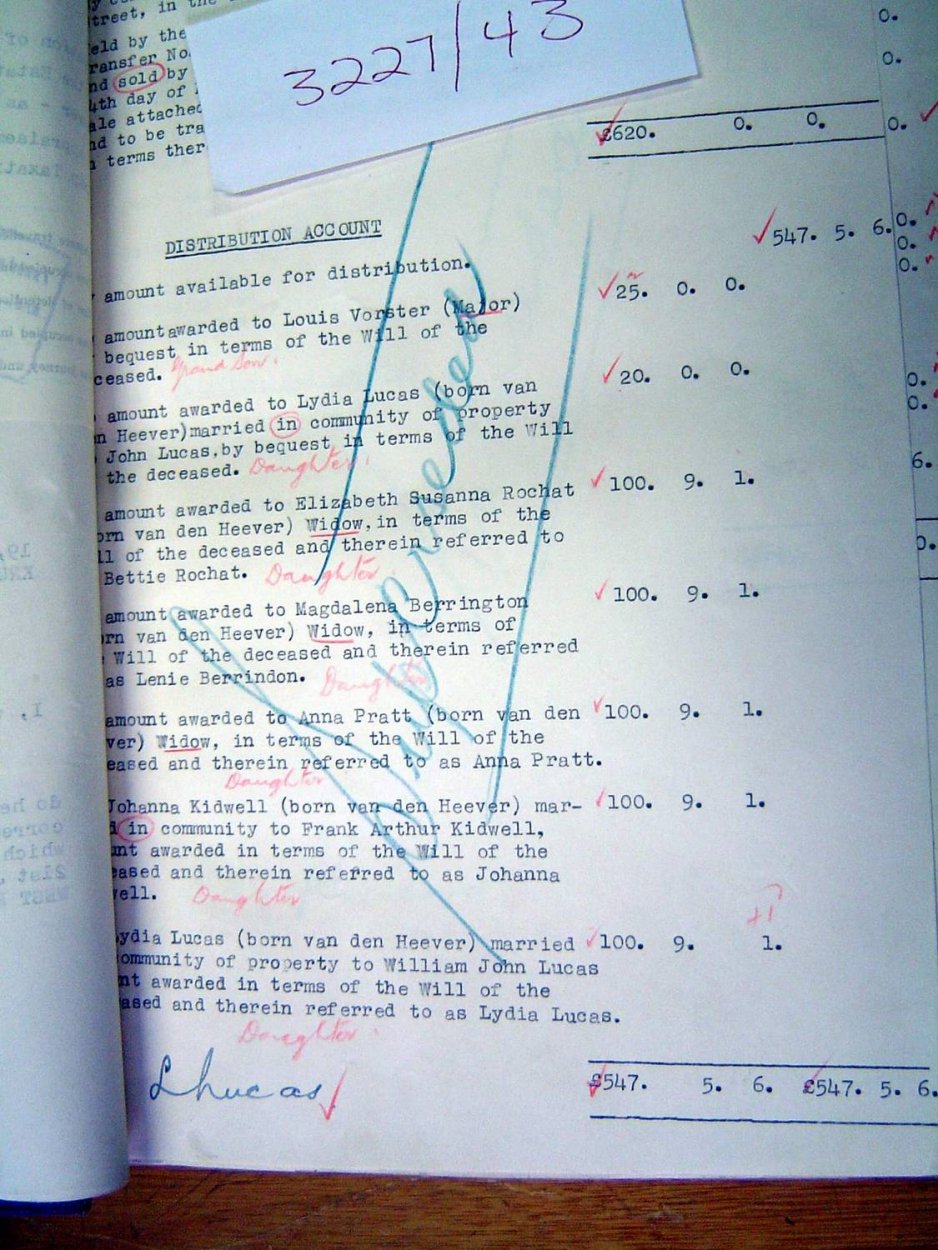 street, in the
3227/43
eld by the
ransfer No.
nd sold by
4th day of
ale attached
nd to be tra
n terms ther
£620. 0. 0.
DISTRIBUTION ACCOUNT
547. 5. 6.
amount available for distribution.
amountawarded to Louis Vorster (Major) 25. 0. 0.
bequest in terms of the Will of the
ceased. Grand Son.
amount awarded to Lydia Lucas (born van 20. 0. 0.
n Heever)married in community of property
John Lucas,by bequest in terms of the Will
the deceased. Daughter.
amount awarded to Elizabeth Susanna Rochat 100. 9. 1.
orn van den Heever) Widow,in terms of the
ll of the deceased and therein referred to
Bettie Rochat. Daughter.
amount awarded to Magdalena Berrington 100. 9. 1.
rn van den Heever) Widow, in terms of
Will of the deceased and therein referred
as Lenie Berrindon. Daughter
amount awarded to Anna Pratt (born van den 100. 9. 1.
ver) Widow, in terms of the Will of the
eased and therein referred to as Anna Pratt.
Daughter
Johanna Kidwell (born van den Heever) mar- 100. 9. 1.
d in community to Frank Arthur Kidwell,
unt awarded in terms of the Will of the
eased and therein referred to as Johanna
well. Daughter
+1
ydia Lucas (born van den Heever) married 100. 9. 1.
ommunity of property to William John Lucas
nt awarded in terms of the Will of the
ased and therein referred to as Lydia Lucas.
Daughter.
Superseded
Lhucas
£547. 5. 6. £547. 5. 6.